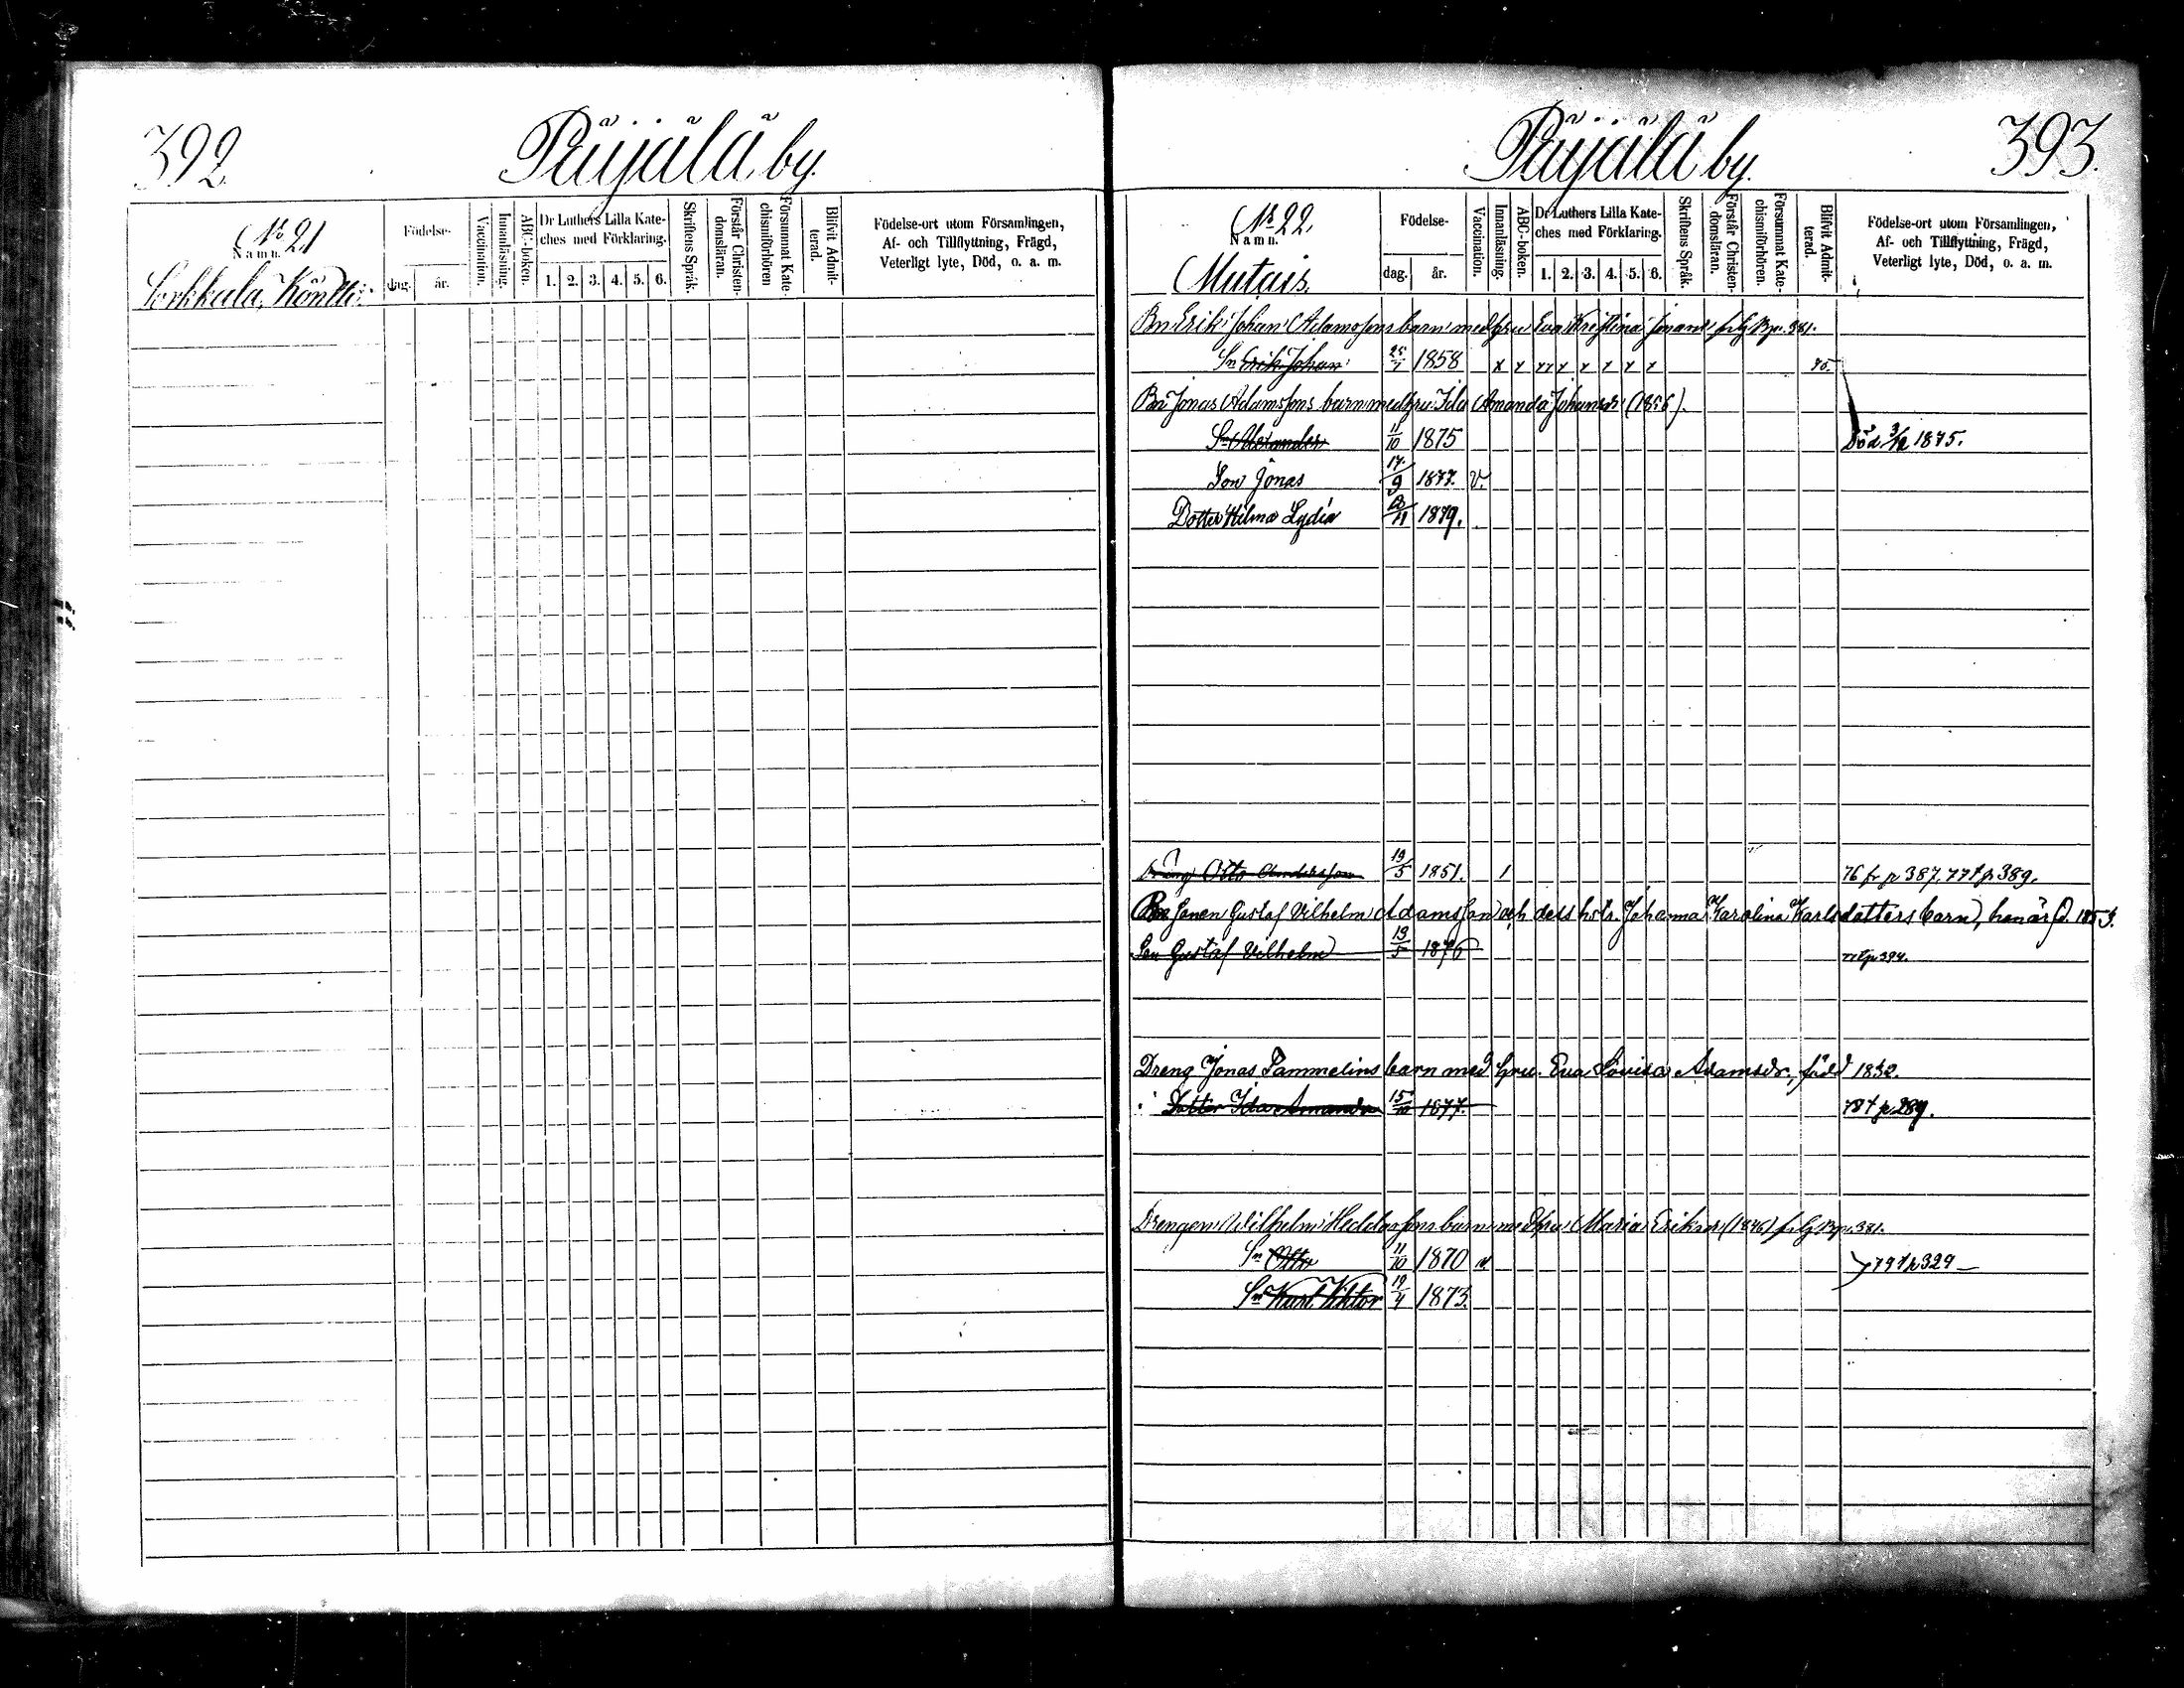 392.
Päijälä by.
No 21
Namn.
Sorkkala, Könthi
Födelse-
dag.
år.
Vaccination.
Innanläsning.
ABC-boken.
Dr Luthers Lilla Kate-
ches med Förklaring.
1. 2. 3. 4. 5. 6.
Skriftens Språk.
Förstår Christen-
domsläran.
Försummat Kate-
chismiförhören
Blifvit Admit-
terad.
Födelse-ort utom Församlingen,
Af- och Tillflyttning, Frägd,
Veterligt lyte, Död, o. a. m.
Päijälä by.
393.
No 22.
Namn.
Mutais.
Födelse-
dag.
år.
Vaccination.
Innanläsning.
ABC-boken.
Dr Luthers Lilla Kate-
ches med Förklaring.
1. 2. 3. 4. 5. 6.
Skriftens Språk.
Förstår Christen-
domsläran.
Försummat Kate-
chismiförhören.
Blifvit Admit-
terad.
Födelse-ort utom Församlingen,
Af- och Tillflyttning, Frägd,
Veterligt lyte, Död, o. a. m.
Bn Erik Johan Adamssons barn med hru Eva Kristina 381.
Sn Erik Johan 1858 x x xx x x x x x 75.
Bn Jonas Adamssons barn med hru Ida Amanda Johansdr (1856).
Sn Alexander 11/10 1875 Död 3/12 1875.
Son Jonas 17/9 1877. v.
Dotter Hilma Lydia 1879.
Dräng Otto Andersson 19/5 1851. 1 76 fr p 387. 77 t p 389.
Gustaf Vilhelm Adamsson och dess hstr. Johanna Karolina Karlsdotters barn, hon är f.
Son Gustaf Vilhelm 19/5 1876 t p 394.
Dreng Jonas Tammelins barn med hru. Eva Lovisa Adamsdr., född 1852.
Dotter Ida Amanda 15/10 1877. 78 t p 289.
Drengen Vilhelm barn med hru Maria Eriksdr (1846) 381.
Sn Otto 11/10 1870 v
79 t p 329
Sn Karl Viktor 19/4 1873.